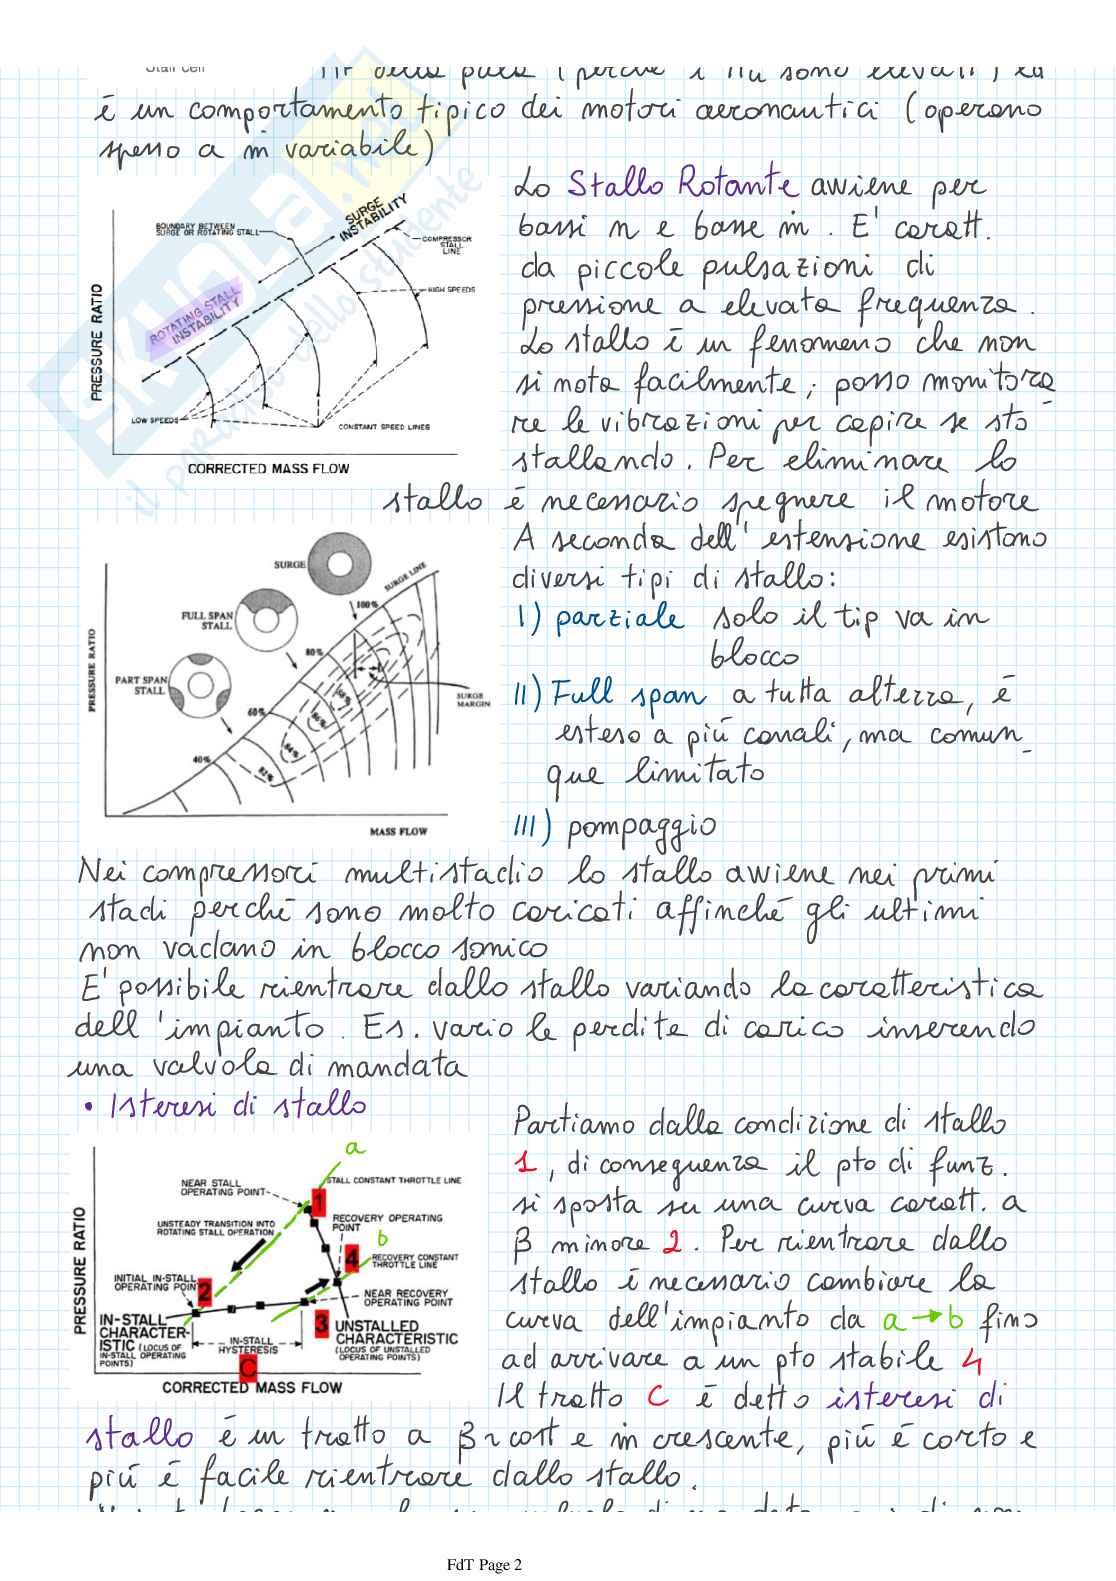 Stall Cell
TIP della pala (perché i Mu sono elevati) ed
è un comportamento tipico dei motori aeronautici (operano
spesso a ṁ variabile)
Lo Stallo Rotante avviene per
bassi n e basse ṁ. E' caratt.
da piccole pulsazioni di
pressione a elevata frequenza.
Lo stallo è un fenomeno che non
si nota facilmente, posso monitora
re le vibrazioni per capire se sto
stallando. Per eliminare lo
stallo è necessario spegnere il motore
BOUNDARY BETWEEN
SURGE OR ROTATING STALL
SURGE
INSTABILITY
COMPRESSOR
STALL
LINE
HIGH SPEEDS
ROTATING STALL
INSTABILITY
PRESSURE RATIO
LOW SPEEDS
CONSTANT SPEED LINES
CORRECTED MASS FLOW
SKUOLA.net
il paradiso dello studente
A seconda dell'estensione esistono
diversi tipi di stallo:
I) parziale solo il tip va in
blocco
II) Full span a tutta altezza, è
esteso a più canali, ma comun
que limitato
III) pompaggio
SURGE
SURGE LINE
FULL SPAN
STALL
100%
80%
PART SPAN
STALL
SURGE
MARGIN
60%
40%
86%
84%
82%
PRESSURE RATIO
MASS FLOW
Nei compressori multistadio lo stallo avviene nei primi
stadi perché sono molto caricati affinché gli ultimi
non vadano in blocco sonico
E' possibile rientrare dallo stallo variando la caratteristica
dell'impianto. Es. vario le perdite di carico inserendo
una valvola di mandata
• Isteresi di stallo
Partiamo dalla condizione di stallo
1, di conseguenza il pto di funz.
si sposta su una curva caratt. a
β minore 2. Per rientrare dallo
stallo è necessario cambiare la
curva dell'impianto da a → b fino
ad arrivare a un pto stabile 4
Il tratto C è detto isteresi di
stallo è un tratto a β ≃ cost e ṁ crescente, più è corto e
più è facile rientrare dallo stallo.
a
NEAR STALL
OPERATING POINT
STALL CONSTANT THROTTLE LINE
1
UNSTEADY TRANSITION INTO
ROTATING STALL OPERATION
RECOVERY OPERATING
POINT
b
4
RECOVERY CONSTANT
THROTTLE LINE
INITIAL IN-STALL
OPERATING POINT
2
NEAR RECOVERY
OPERATING POINT
3
IN-STALL
CHARACTER-
ISTIC (LOCUS OF
IN-STALL OPERATING
POINTS)
IN-STALL
HYSTERESIS
C
UNSTALLED
CHARACTERISTIC
(LOCUS OF UNSTALLED
OPERATING POINTS)
PRESSURE RATIO
CORRECTED MASS FLOW
FdT Page 2